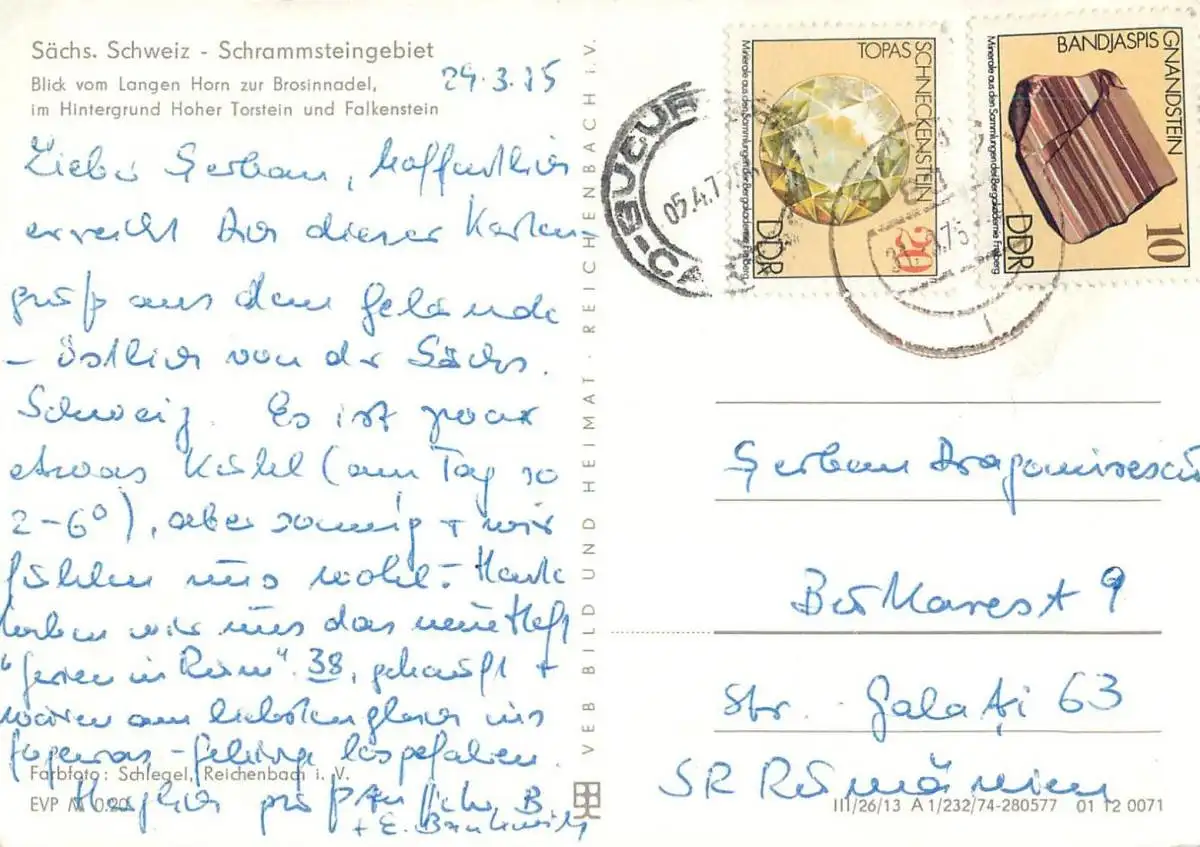 Sächs. Schweiz - Schrammsteingebiet
Blick vom Langen Horn zur Brosinnadel,
im Hintergrund Hoher Torstein und Falkenstein
29.3.75
Lieber Şerban, hoffentlich
erreicht Dich dieser Karten-
gruß aus dem Gelände
- östlich von der Sächs.
Schweiz. Es ist zwar
etwas kühl (am Tag so
2-6°), aber sonnig + wir
fühlen uns wohl. - Heute
haben wir uns das neue Heft
"Ferien in Rum" 38, gekauft +
wären am liebsten gleich ins
Fogaras-Gebirge losgefahren.
Herzlich grüßt
+ E.
Farbfoto: Schlegel, Reichenbach i. V.
EVP M 0.20
VEB BILD UND HEIMAT · REICHENBACH i. V.
05.4.7
TOPAS
SCHNECKENSTEIN
Minerale aus den Sammlungen der Bergakademie Freiberg
DDR
20
BANDJASPIS
GNANDSTEIN
Minerale aus den Sammlungen der Bergakademie Freiberg
DDR
10
Şerban Dragomirescu
Bukarest 9
Str. Galaţi 63
SR Rumänien
III/26/13 A 1/232/74-280577 01 12 0071